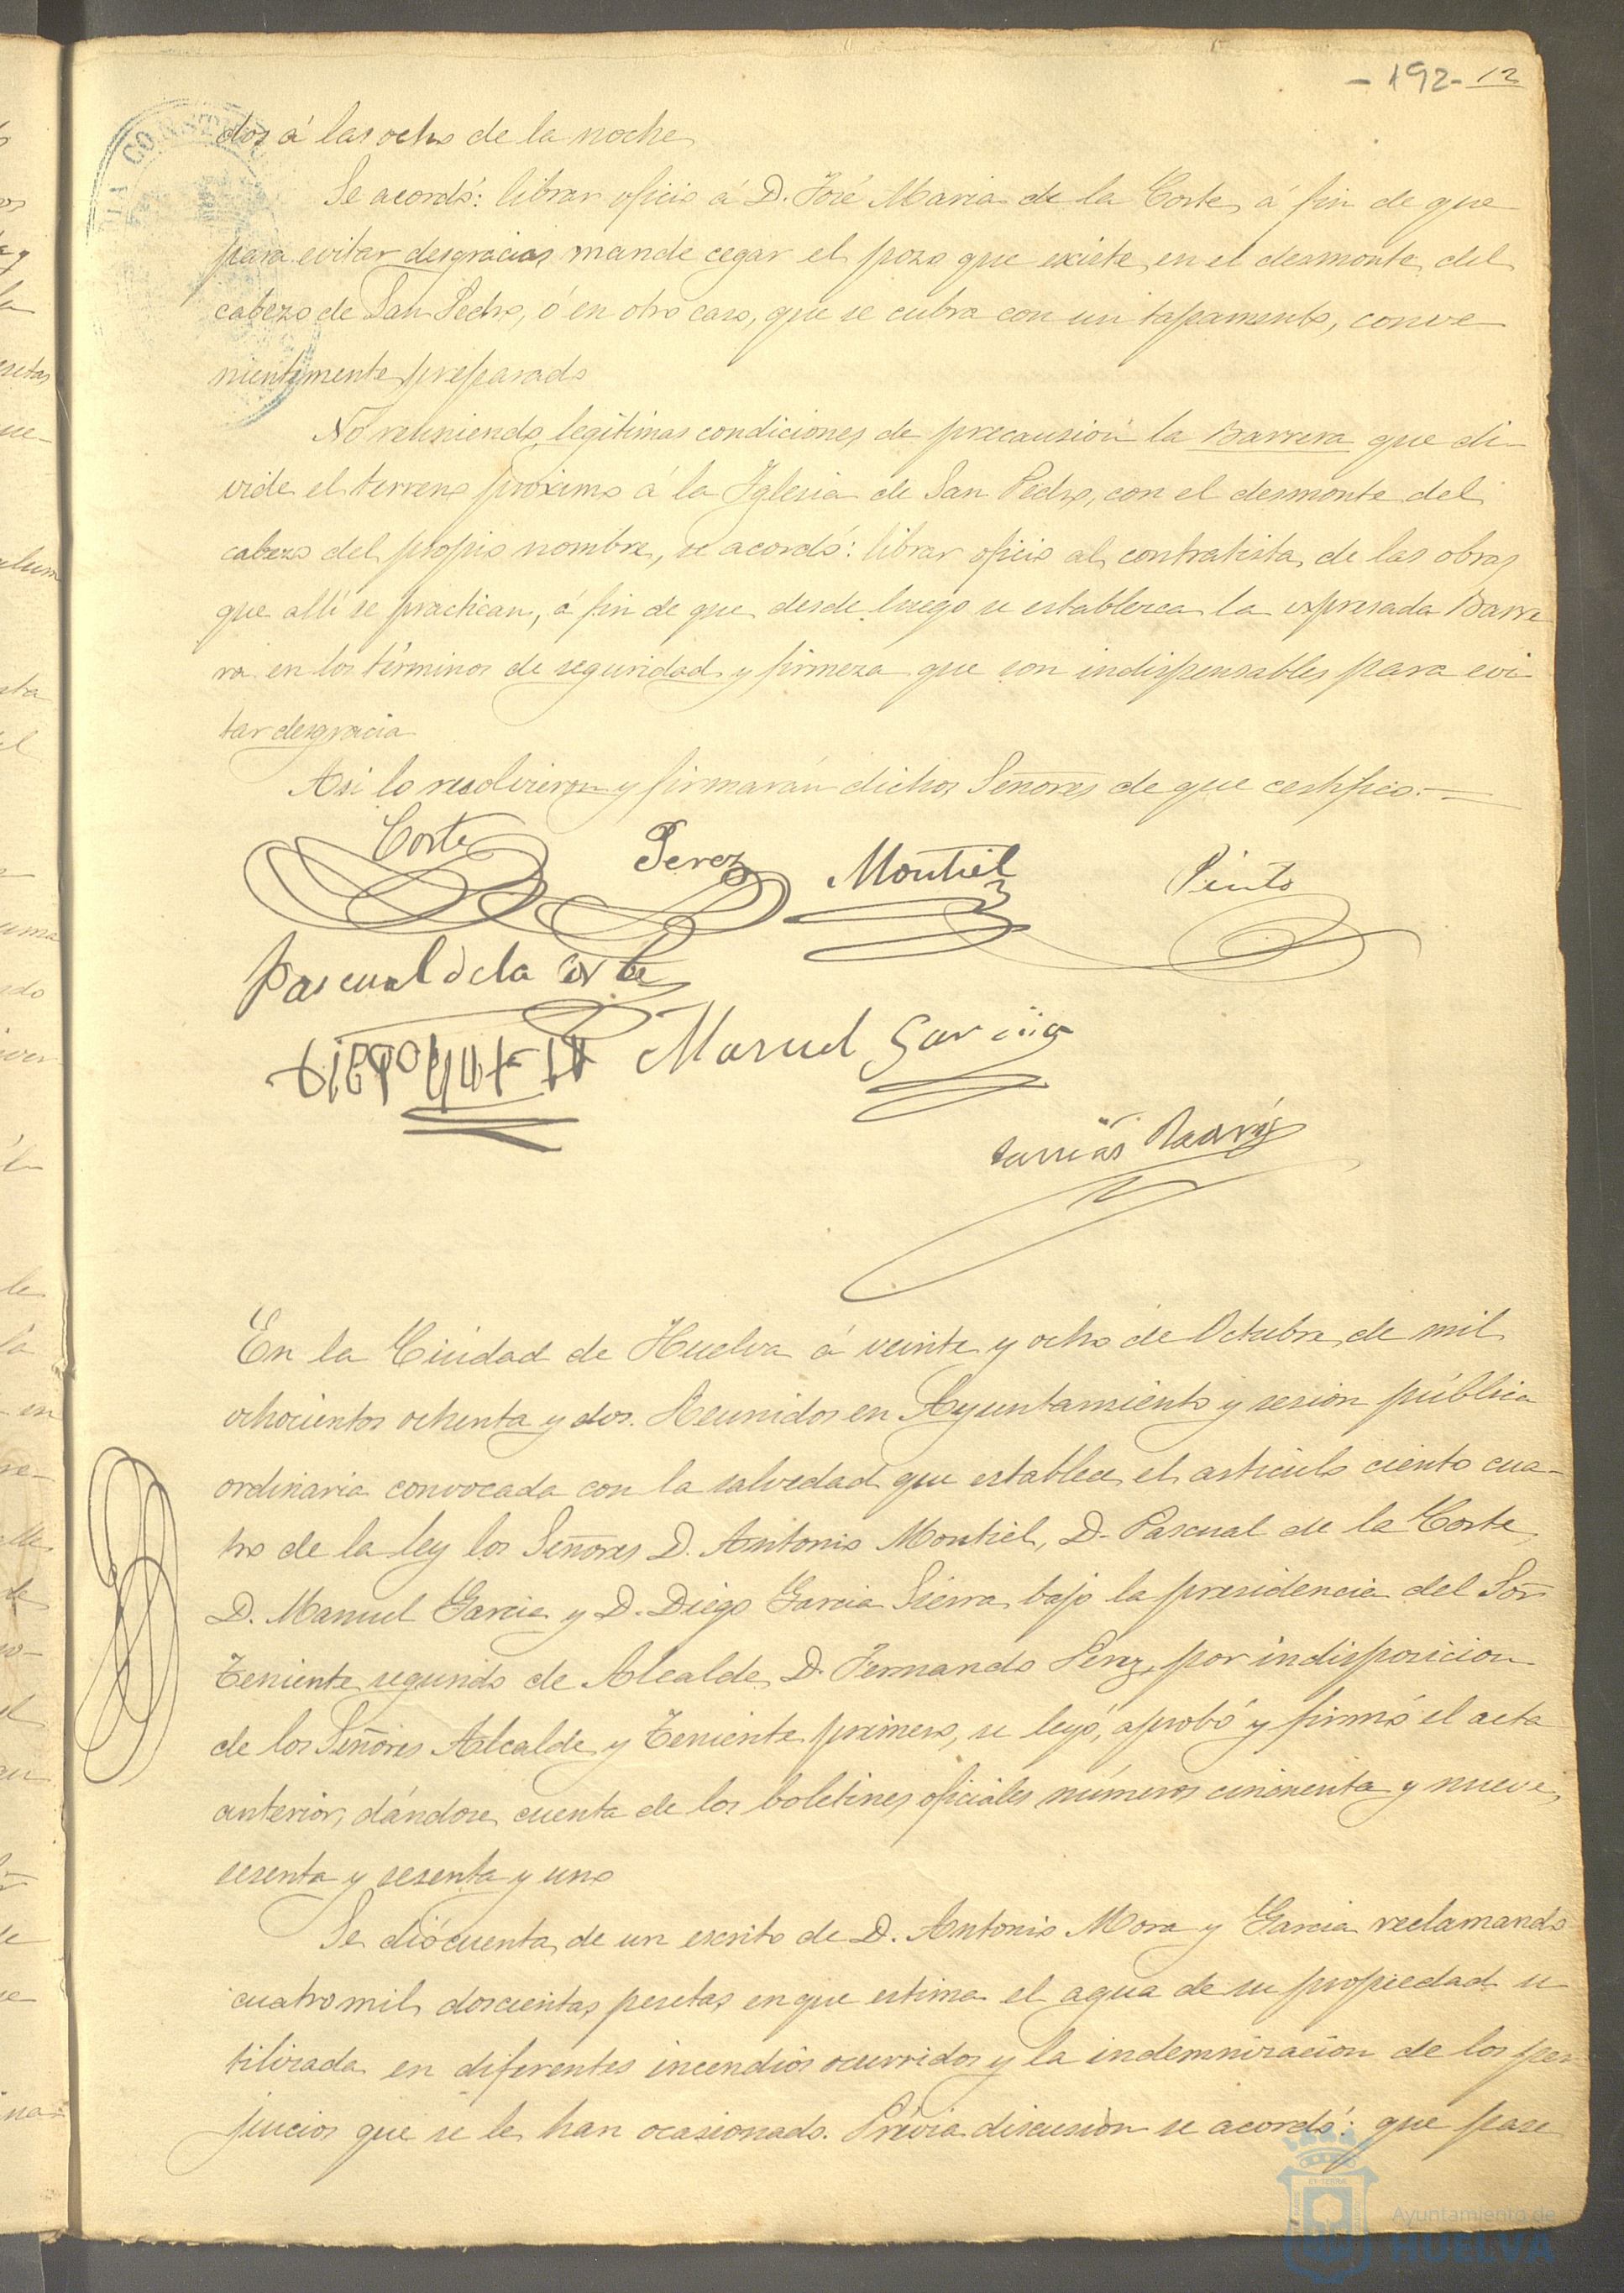 - 192 - 12
dos á las ocho de la noche
Se acordó: librar oficio á D. José Maria de la Corte, á fin de que
para evitar desgracias mande cegar el pozo que existe en el desmonte del
cabezo de San Pedro, ó en otro caso, que se cubra con un tapamento, conve
nientemente preparado
No reuniendo legítimas condiciones de precausión la Barrera que di-
vide el terreno próximo á la Iglesia de San Pedro, con el desmonte del
cabezo del propio nombre, se acordó: librar oficio al contratista de las obras
que allí se practican, á fin de que desde luego se establezca la expresada Barre
ra en los términos de seguridad y firmeza que son indispensables para evi-
tar desgracia
Asi lo resolvieron y firmarán dichos Señores de que certifico.—
Corte Perez Montiel Pinto
Pascual de la Corte
Manuel Garcia
En la Ciudad de Huelva á veinte y ocho de Octubre de mil
ochocientos ochenta y dos. Reunidos en Ayuntamiento y sesion pública
ordinaria convocada con la salvedad que establece el articulo ciento cua-
tro de la ley los Señores D. Antonio Montiel, D. Pascual de la Corte,
D. Manuel Garcia y D. Diego Garcia Sierra bajo la presidencia del Sor
Teniente segundo de Alcalde D. Fernando Pérez, por indisposicion
de los Señores Alcalde y Teniente primero, se leyó, aprobó y firmó el acta
anterior, dándose cuenta de los boletines oficiales números cincuenta y nueve,
sesenta y sesenta y uno
Se dió cuenta de un escrito de D. Antonio Mora y Garcia reclamando
cuatro mil doscientas pesetas en que estima el agua de su propiedad u
tilizada en diferentes incendios ocurridos y la indemnizacion de los per
juicios que se le han ocasionado. Prévia discusion se acordó: que pase
Ayuntamiento de
HUELVA